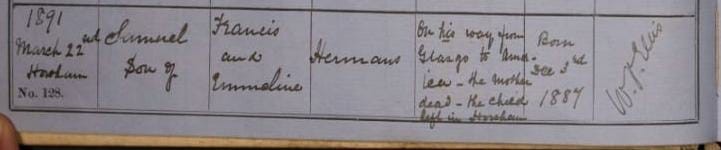 1891
March 22nd
Horsham
No. 128.
Samuel
Son of
Francis
and
Emmeline
Hermans
On his way from
Glasgo to Amer-
ica - the mother
dead - the child
left in Horsham
Born
Dec 3rd
1887
W. P. Ellis